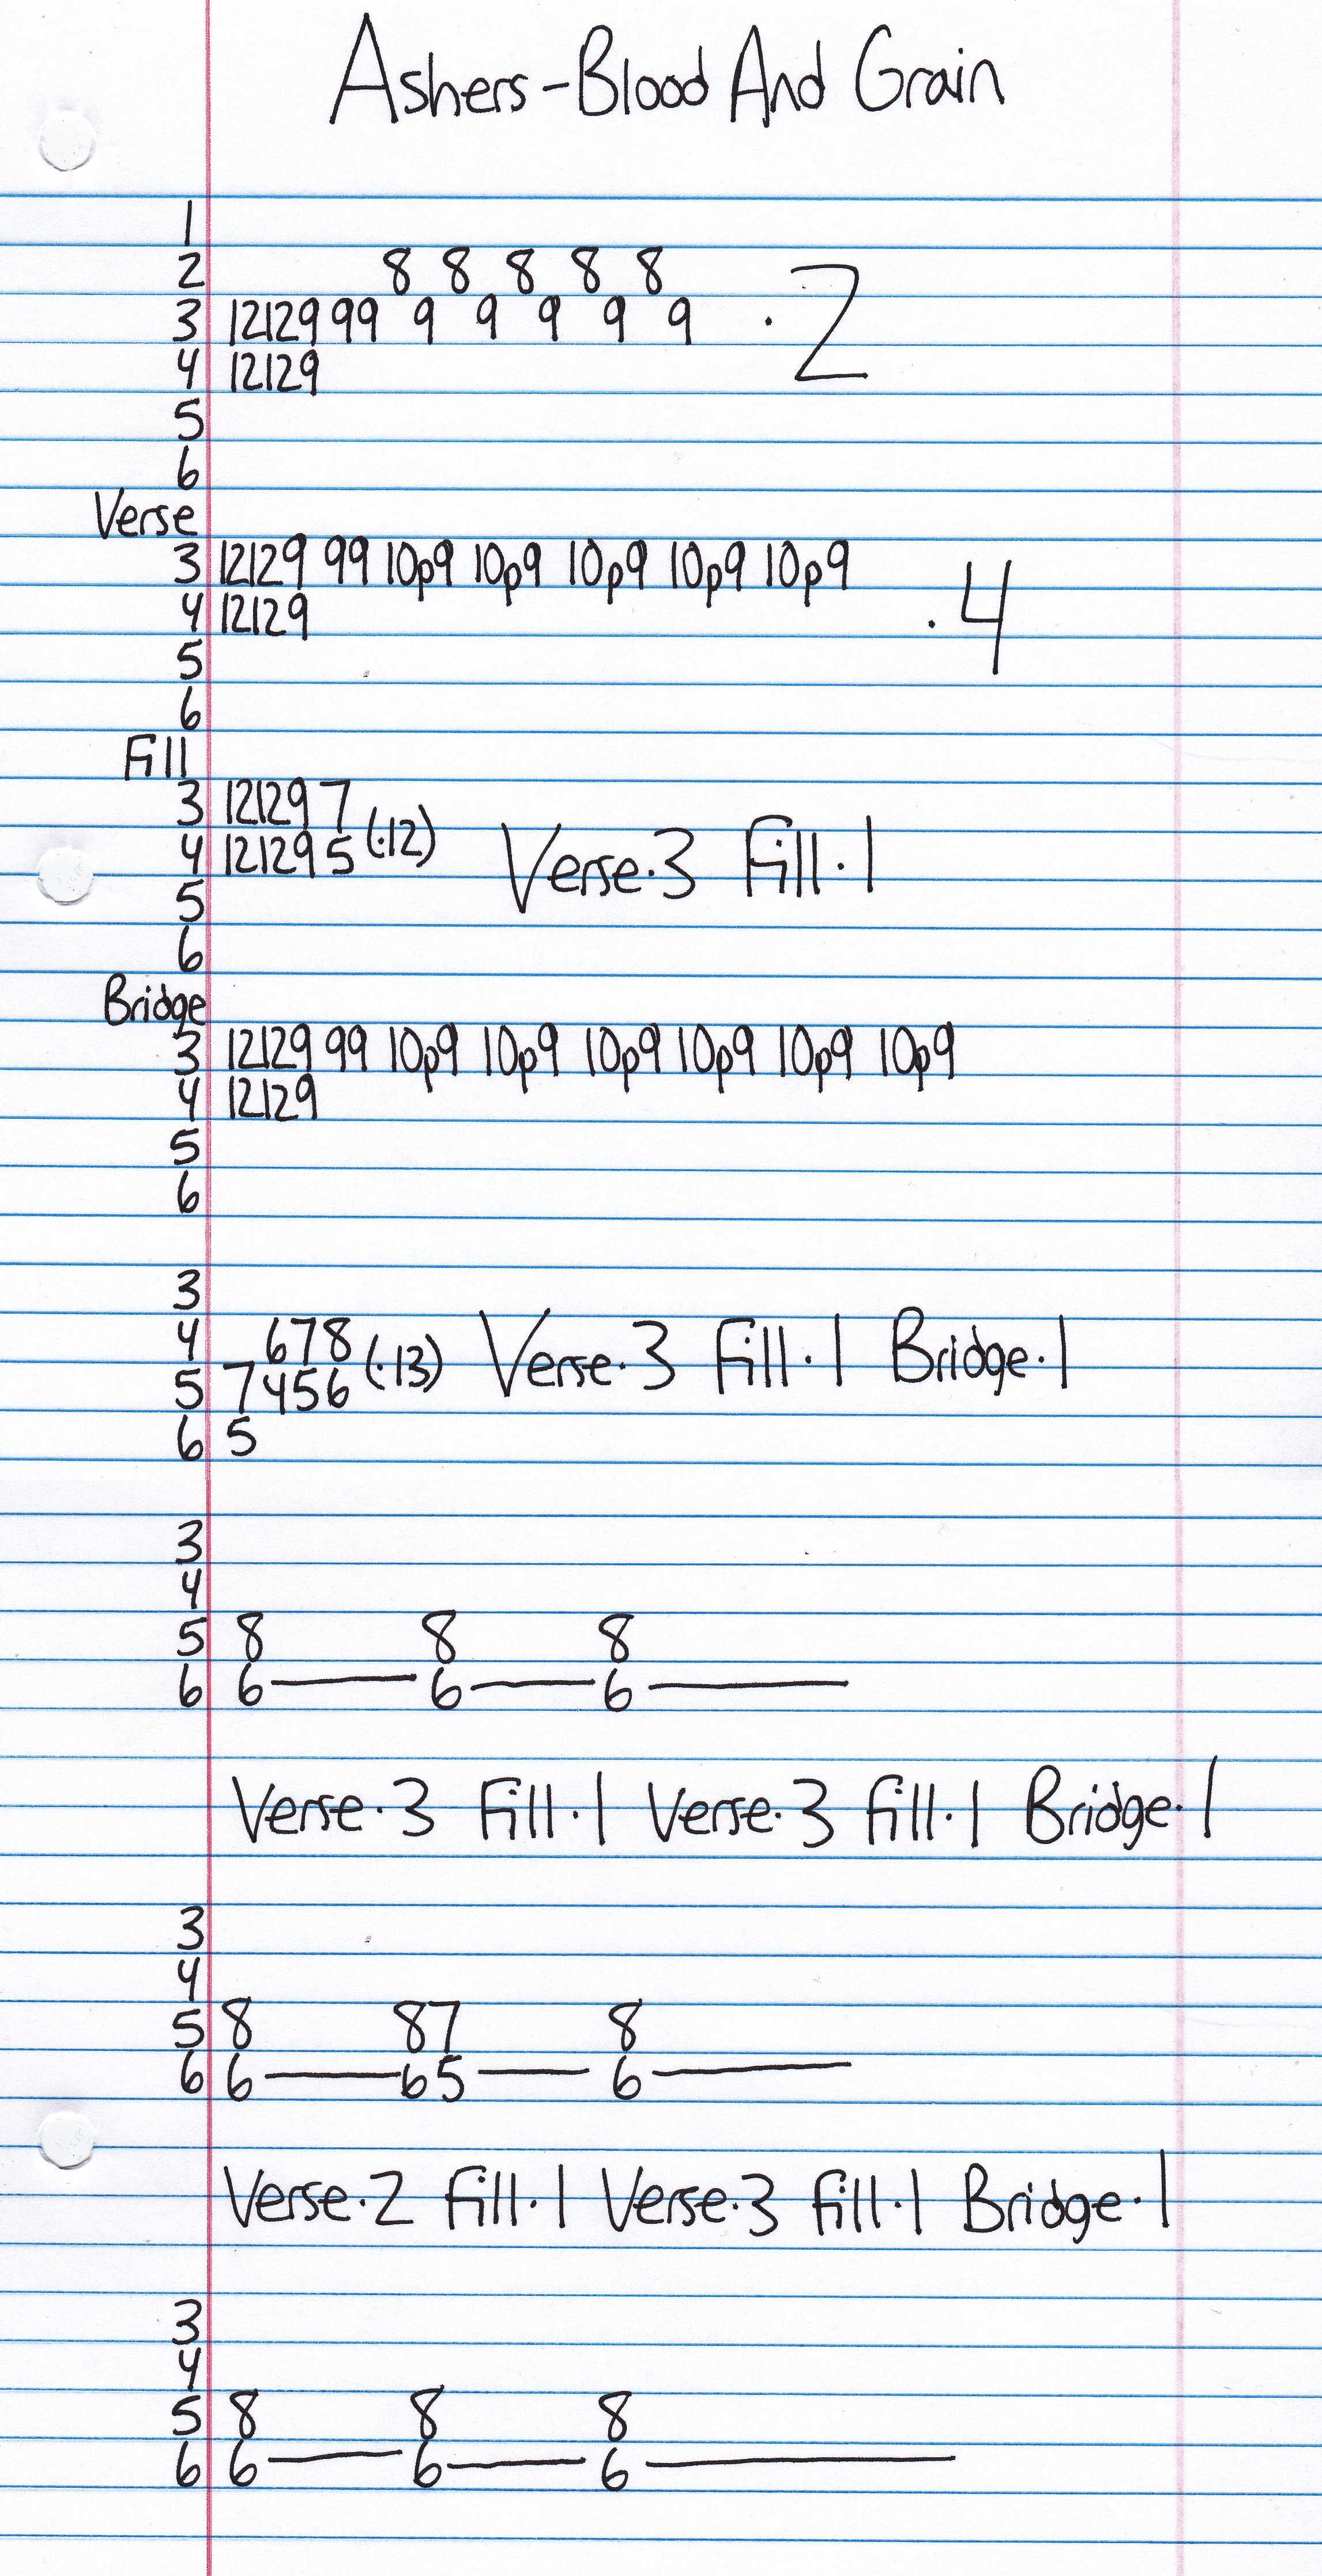 Ashers-Blood And Grain
1
2 8 8 8 8 8
3 12129 99 9 9 9 9 9 .2
4 12129
5
6
Verse
3 12129 99 10p9 10p9 10p9 10p9 10p9
4 12129 .4
5
6
Fill
3 12129 7
4 12129 5 (.12) Verse.3 Fill.1
5
6
Bridge
3 12129 99 10p9 10p9 10p9 10p9 10p9 10p9
4 12129
5
6
3
4 678
5 7456 (.13) Verse.3 Fill.1 Bridge.1
6 5
3
4
5 8 8 8
6 6 — 6 — 6 —
Verse.3 Fill.1 Verse.3 Fill.1 Bridge.1
3
4
5 8 87 8
6 6 — 65 — 6 —
Verse.2 Fill.1 Verse.3 Fill.1 Bridge.1
3
4
5 8 8 8
6 6 — 6 — 6 —